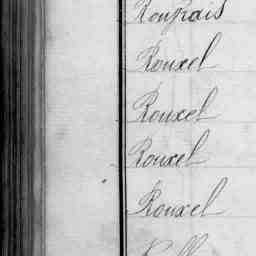 Roupais
Rouxel
Rouxel
Rouxel
Rouxel